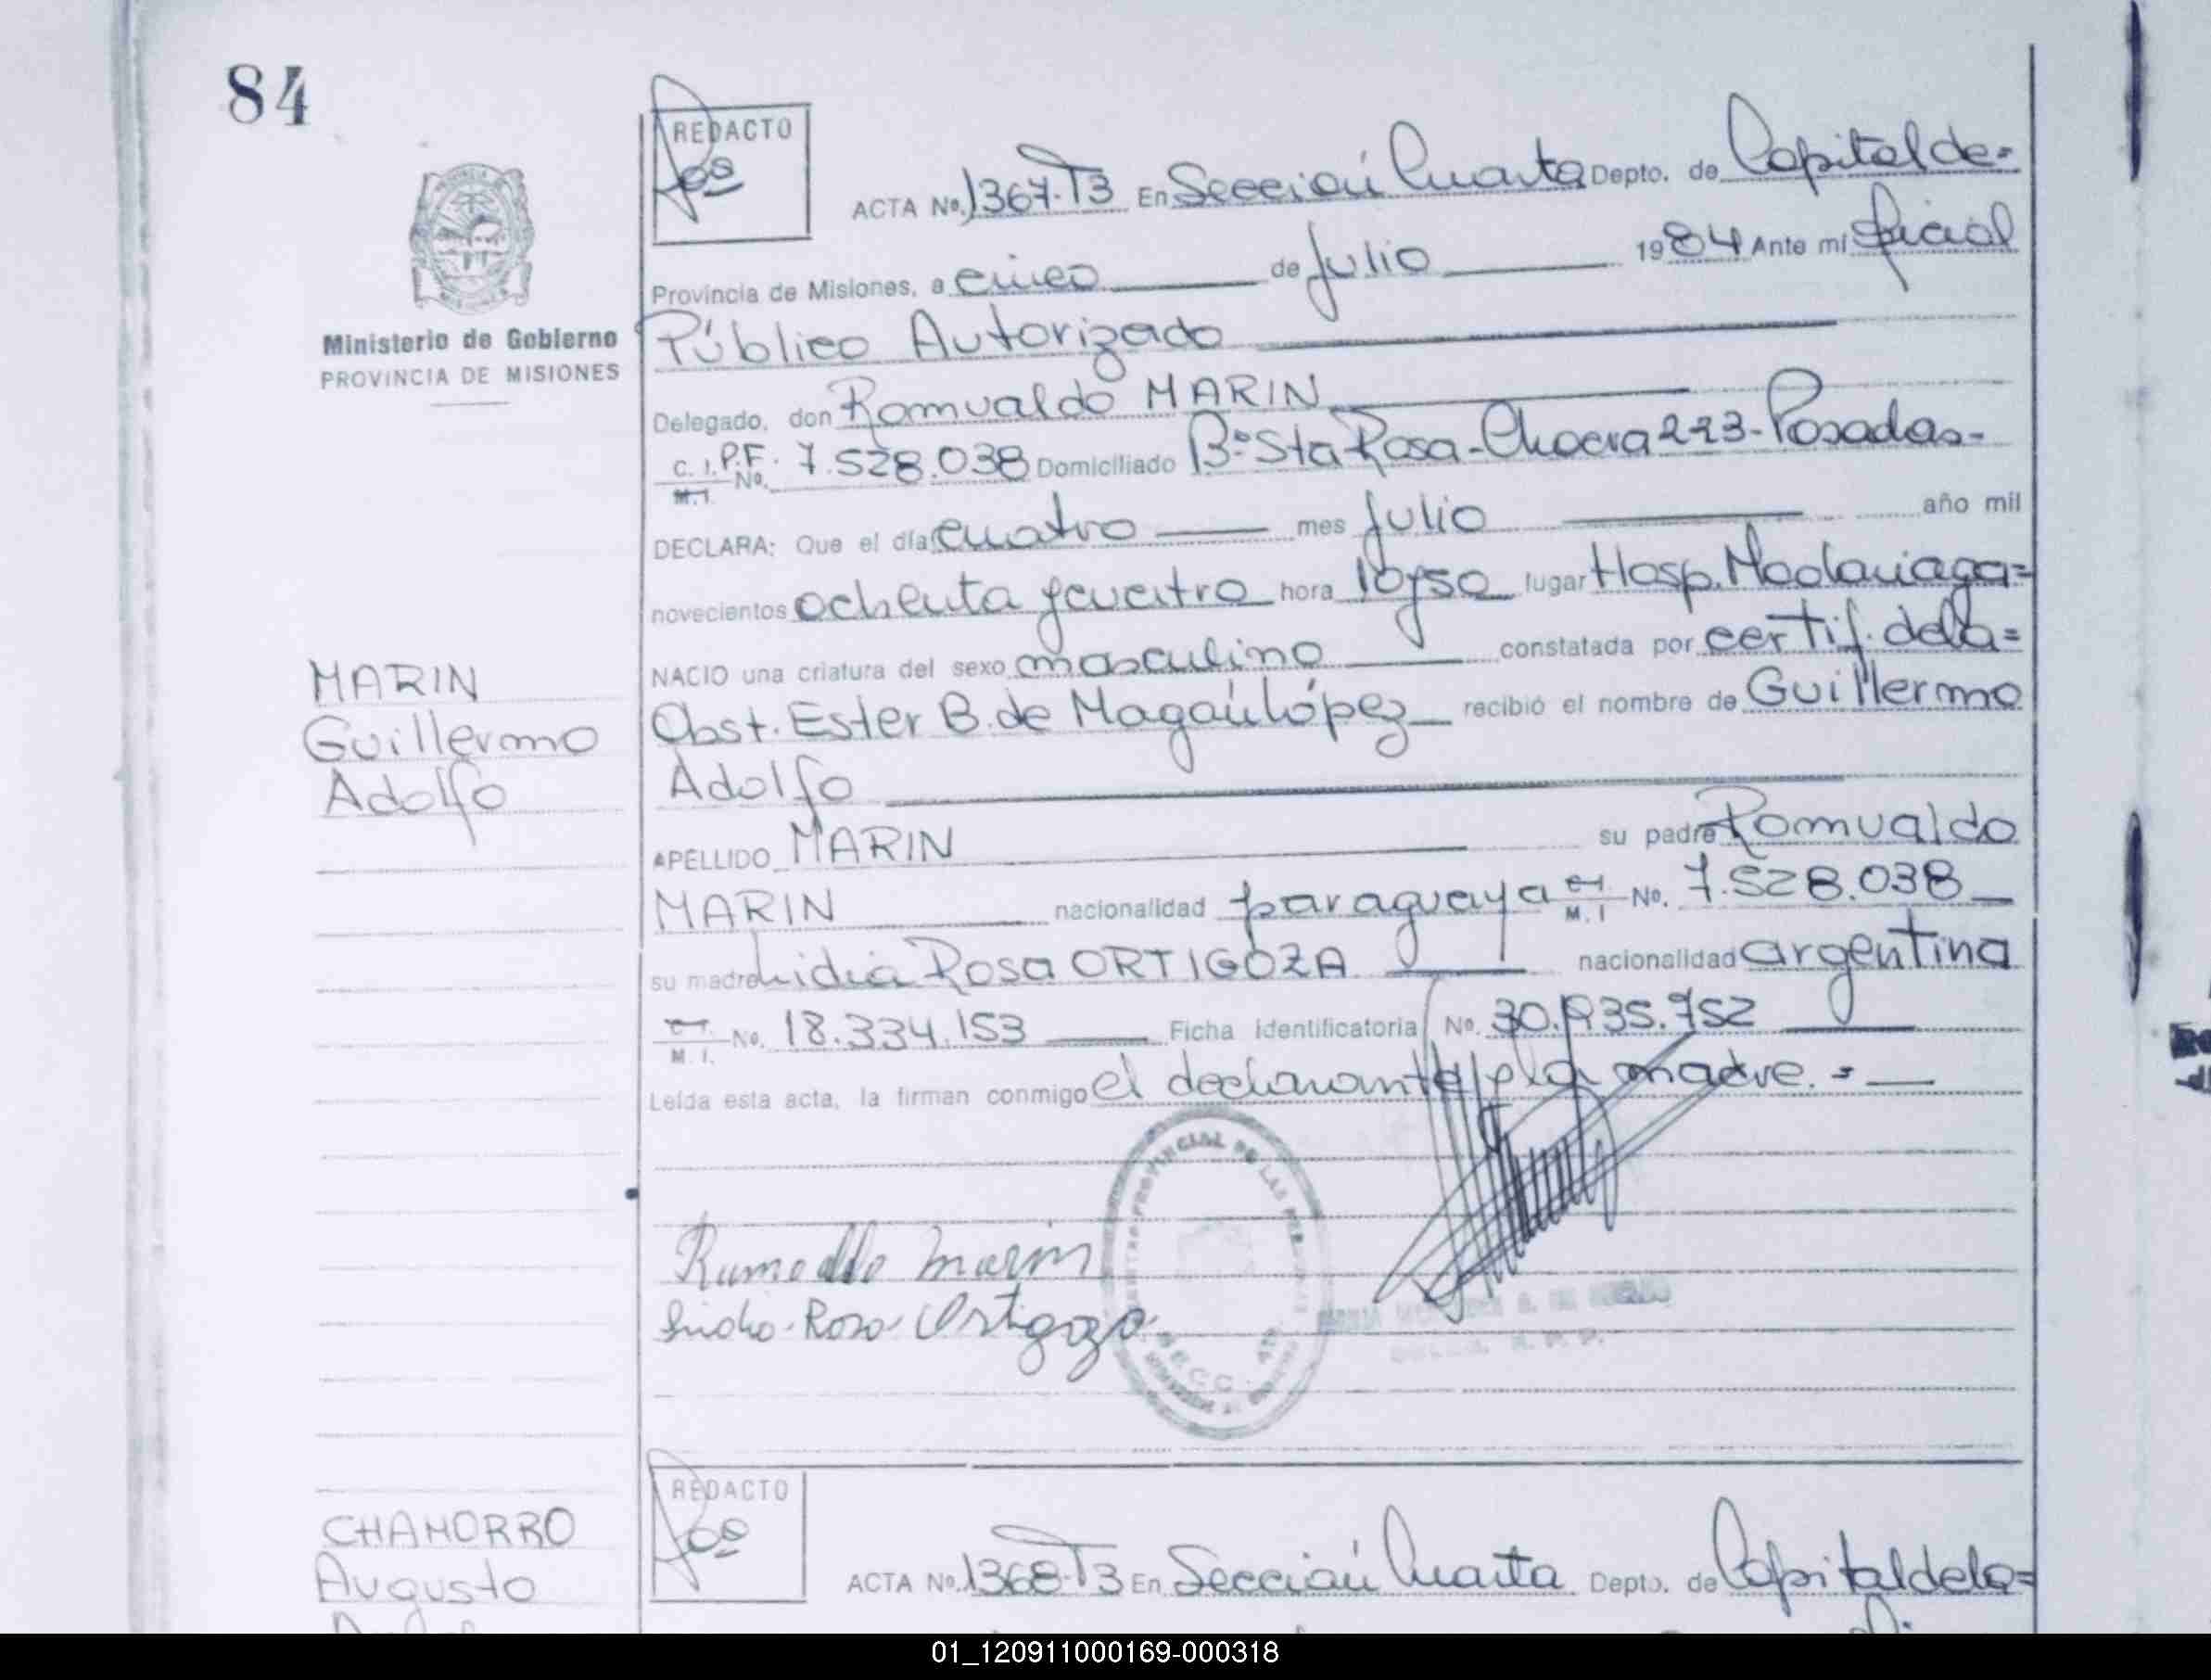 84
REDACTO
ACTA No. 1367-T3 En Sección Cuarta Depto. de Capital de=
Provincia de Misiones, a cinco de Julio 1984 Ante mí Oficial
Ministerio de Gobierno
PROVINCIA DE MISIONES
Público Autorizado
Delegado, don Romualdo MARIN
C. I. P.F. No. 7.528.038 Domiciliado B° Sta Rosa-Chacra 223-Posadas-
M.I.
DECLARA: Que el día cuatro mes Julio año mil
novecientos ochenta y cuatro hora 10y50 lugar Hosp. Madariaga=
NACIO una criatura del sexo masculino constatada por certif. de la=
Obst. Ester B. de Magaú López recibió el nombre de Guillermo
Adolfo
MARIN
Guillermo
Adolfo
APELLIDO MARIN su padre Romualdo
MARIN nacionalidad paraguaya M. I No. 7.528.038
su madre Lidia Rosa ORTIGOZA nacionalidad argentina
M. I. No. 18.334.153 Ficha identificatoria No. 30.935.752
Leída esta acta, la firman conmigo el declarante y la madre.=
Rumoaldo Marin
Lidia Rosa Ortigoza
REDACTO
CHAMORRO
Augusto
ACTA No. 1368-T3 En Sección Cuarta Depto. de Capital de la=
01_120911000169-000318